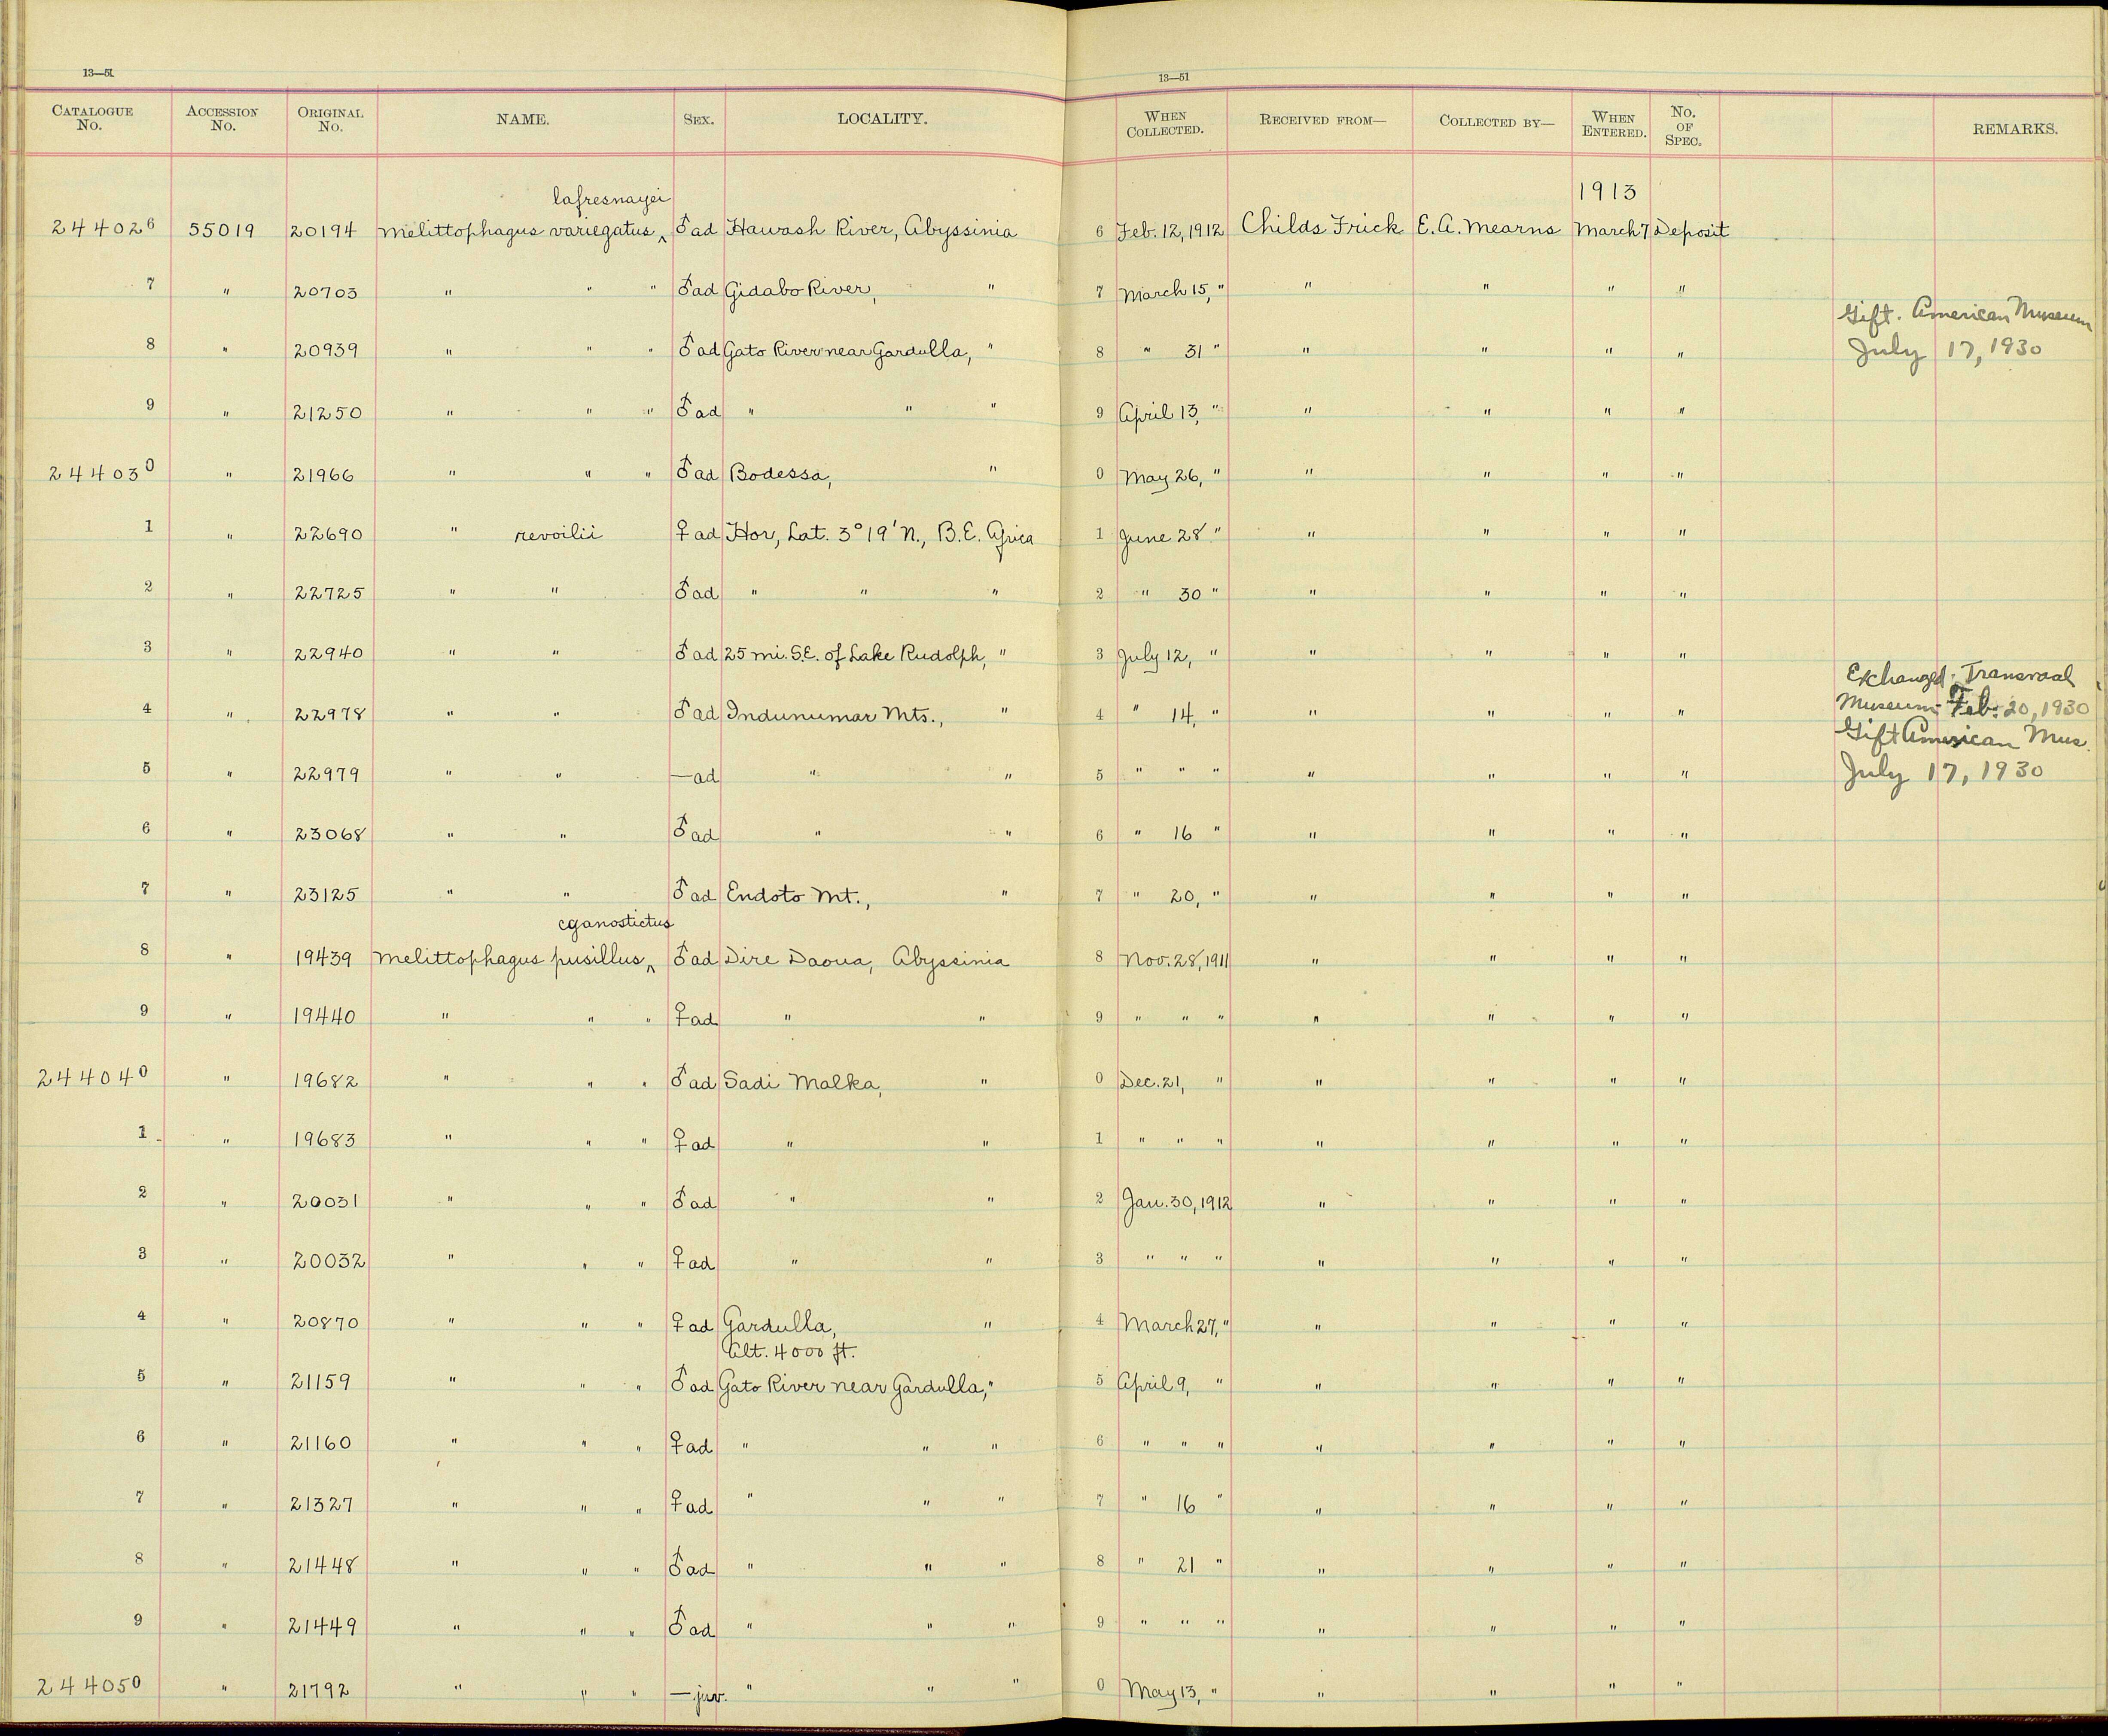 13—51 13—51
CATALOGUE No. ACCESSION No. ORIGINAL No. NAME. SEX. LOCALITY. WHEN COLLECTED. RECEIVED FROM— COLLECTED BY— WHEN ENTERED. No. OF SPEC. REMARKS.
lafresnayei 1913
244026 55019 20194 Melittophagus variegatus ‸ ♂ad Hawash River, Abyssinia 6 Feb. 12, 1912 Childs Frick E. A. Mearns March 7 Deposit
7 " 20703 " " " ♂ad Gidabo River, " 7 March 15, " " " " "
Gift. American Museum
8 " 20939 " " " ♂ad Gato River near Gardulla, " 8 " 31 " " " " " July 17, 1930
9 " 21250 " " " ♂ad " " " 9 April 13, " " " " "
244030 " 21966 " " " ♂ad Bodessa, " 0 May 26, " " " " "
1 " 22690 " revoilii ♀ad Hor, Lat. 3°19' N., B.E. Africa 1 June 28 " " " " "
2 " 22725 " " ♂ad " " " 2 " 30 " " " " "
3 " 22940 " " ♂ad 25 mi. S.E. of Lake Rudolph, " 3 July 12, " " " " "
Exchanged. Transvaal
4 " 22978 " " ♂ad Indunumar Mts., " 4 " 14, " " " " " Museum- Feb. 20, 1930
Gift American Mus.
5 " 22979 " " —ad " " 5 " " " " " " " July 17, 1930
6 " 23068 " " ♂ad " " 6 " 16 " " " " "
7 " 23125 " " ♂ad Endoto Mt., " 7 " 20, " " " " "
cyanostictus
8 " 19439 Melittophagus pusillus ‸ ♂ad Dire Daoua, Abyssinia 8 Nov. 28, 1911 " " " "
9 " 19440 " " " ♀ad " " 9 " " " " " " "
244040 " 19682 " " " ♂ad Sadi Malka, " 0 Dec. 21, " " " " "
1 " 19683 " " " ♀ad " " 1 " " " " " " "
2 " 20031 " " " ♂ad " " 2 Jan. 30, 1912 " " " "
3 " 20032 " " " ♀ad " " 3 " " " " " " "
4 " 20870 " " " ♀ad Gardulla, " 4 March 27, " " " " "
Alt. 4000 ft.
5 " 21159 " " " ♂ad Gato River near Gardulla, " 5 April 9, " " " " "
6 " 21160 " " " ♀ad " " " 6 " " " " " " "
7 " 21327 " " " ♀ad " " " 7 " 16 " " " " "
8 " 21448 " " " ♂ad " " " 8 " 21 " " " " "
9 " 21449 " " " ♂ad " " " 9 " " " " " " "
244050 " 21792 " " " —juv. " " " 0 May 13, " " " " "